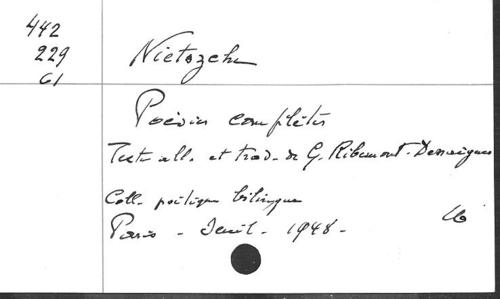 442
229
61
Nietszche
Poésies complètes
Texte all. et trad. de G. Ribemont-Dessaignes
Coll. poétique bilingue
Paris - Seuil - 1948 -